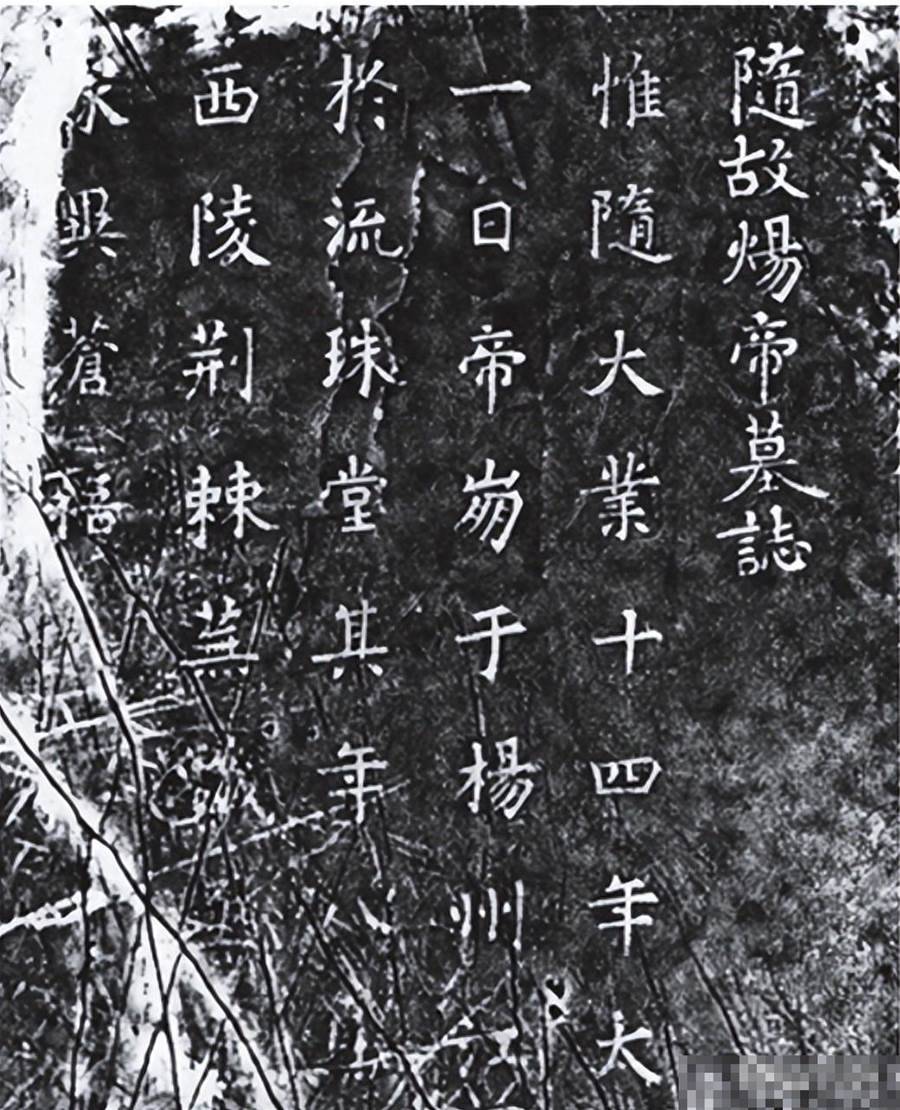 隨故煬帝墓誌
惟隨大業十四年太
一日帝崩于楊州江
於流珠堂其年八
西陵荊棘蕪
永異蒼梧